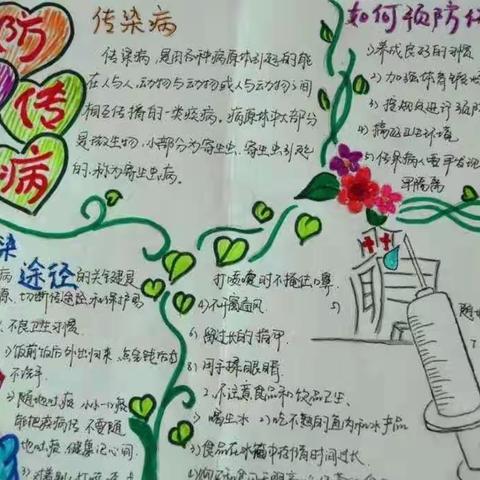 防
传
病
传染病
传染病,是由各种病原体引起的能
在人与人、动物与动物或人与动物之间
相互传播的一类疾病。病原体中大部分
是微生物,小部分为寄生虫,寄生虫引起
的,称为寄生虫病。
如何预防传
1)养成良好的习惯
2)加强体育锻炼
3)按规定进行预防
4)搞好卫生环境
5)传染病人要早发现
早隔离
染
病途径的关键是
源、切断传播途径和保护易
不良卫生习惯
1)饭前饭后外出归来
不洗手
2)随地吐痰
能把疾病传,不要随
地吐痰,健康记心间.
打喷嚏时不掩住口鼻
4)不开窗通风
5)
6)留过长的指甲
8)用手揉眼睛
2、不注意食品和饮品卫生、
1)喝生水 2)吃不熟的鱼肉和水产品
3)食品在冰箱中存储时间过长.
随
7